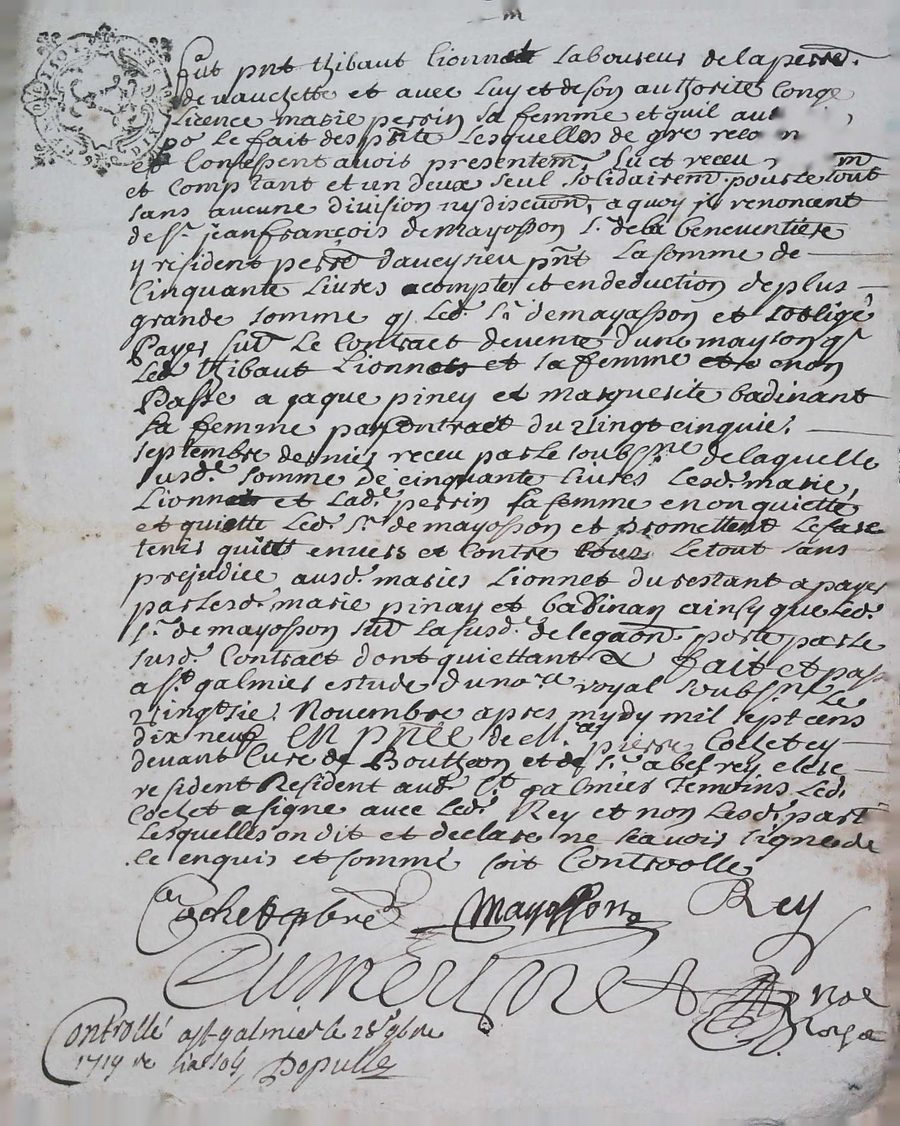 fut pnt thibaut Lionnet Laboureur de la perrse.
de vauchette et avec Luy et de son authorité Conge
Licence marie perrin sa femme et quil au
po Le fait des pntte Lesquelles de gre
et Confessent avoir presentem. Eu et receu
et Comptant et un deux seul Solidairem. pour le tout
sans aucune division ny discution, a quoy ils renoncent
de Sr. jean françois de mayosson Sr. de la beneventiere
y resident perrse daveysieu pnt La somme de
Cinquante Livres acompte et en deduction de plus
grande somme q Led. Sr de mayosson et sobligé
Payer sur Le Contract de vente dune mayson q
Led thibaut Lionnet et sa femme en on
Passe a jaque piney et marguerite badinant
sa femme par Contract du vingt cinquie.
septembre dernier receu par Le soubsne de laquelle
susd. Somme de cinquante livres Lesd. marie,
Lionnet et Lad. perrin sa femme en on quiette
et quiette Led. Sr de mayosson et promettent Le faire
tenir quitte envers et Contre tous Le tout sans
prejudice ausd. maries Lionnet du restant a payer
par Lesd. marie pinay et badinan ainsy que Led.
Sr. de mayosson sur La susd. delegaon. porte par Le
susd. Contract dont quiettant & fait et pas
a st galmier estude du no.re royal soubsne Le
vingtsie. Novembre apres mydy mil sept cens
dix neuf En pnce de Mre pierre Cochet cy
devant Cure de Boutheon et de Sr. abel rey clerc
resident Resident aud. st galmier Temoins Led.
Cochet a signe avec Led. Rey et non Lesd. part
Lesquelles on dit et declare ne scavoir signe de
ce enquis et sommé soit Controolle
Cochet pbre Mayosson Rey
not
roya
Controllé a st galmier le 28e 9bre
1719 re Populle